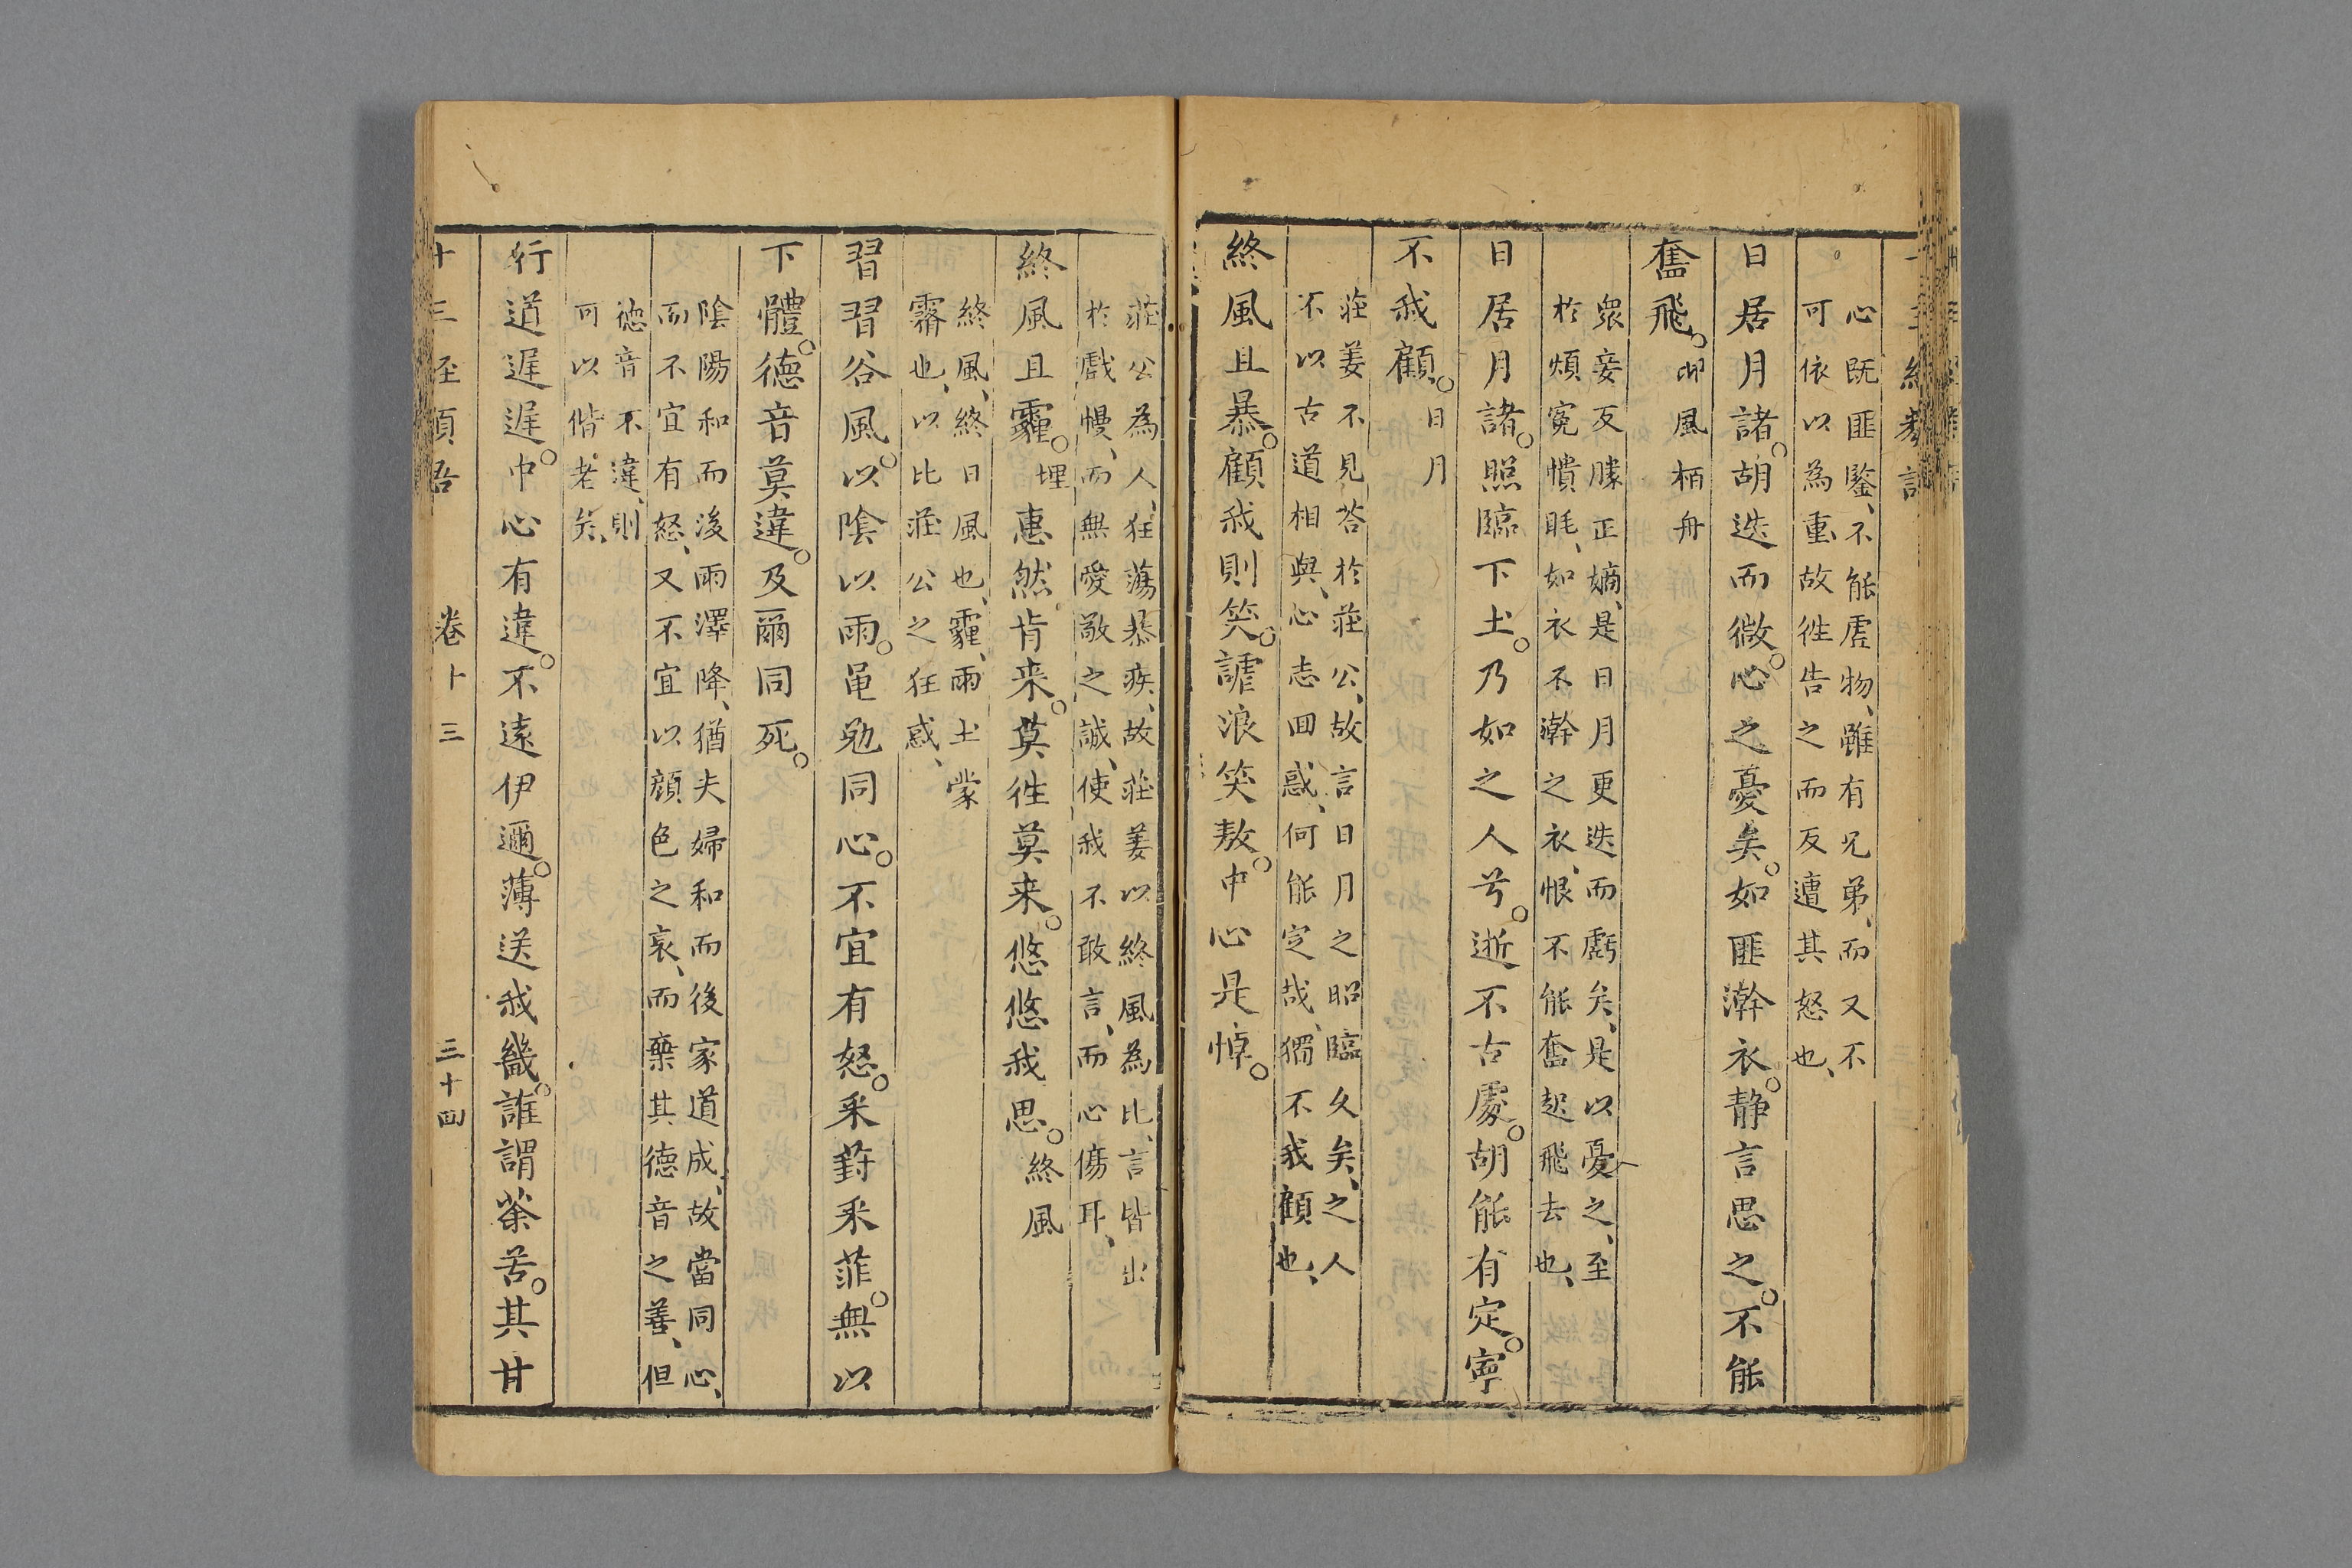 心既匪鑒、不能虛物、雖有兄弟、而又不
可依以為重故徃告之而反遭其怒也、
日居月諸。胡迭而微。心之憂矣。如匪澣衣。静言思之。不能
奮飛。邶風柏舟
衆妾反勝正嫡、是日月更迭而虧矣、是以憂之、至
於煩寃憒眊、如衣不澣之衣、恨不能奮起飛去也、
日居月諸。照臨下土。乃如之人兮。逝不古處。胡能有定。寧
不我顧。日月
莊姜不見荅於莊公、故言日月之照臨久矣、之人
不以古道相與、心志回惑、何能定哉、獨不我顧也、
終風且暴。顧我則笑。謔浪笑敖。中心是悼。
莊公為人、狂蕩暴疾、故莊姜以終風為比、言皆出
於戲慢、而無愛敬之誠、使我不敢言、而心傷耳、
終風且霾。埋惠然肯来。莫徃莫来。悠悠我思。終風
終風、終日風也、霾、雨土蒙
霧也、以比莊公之狂惑、
習習谷風。以陰以雨。黽勉同心。不宜有怒。采葑采菲。無以
下體。德音莫違。及爾同死。
陰陽和而後雨澤降、猶夫婦和而後家道成、故當同心、
而不宜有怒、又不宜以顔色之衰、而棄其德音之善、但
德音不違、則
可以偕老矣、
行道遲遲。中心有違。不遠伊邇。薄送我畿。誰謂荼苦。其甘
卷十三
三十四